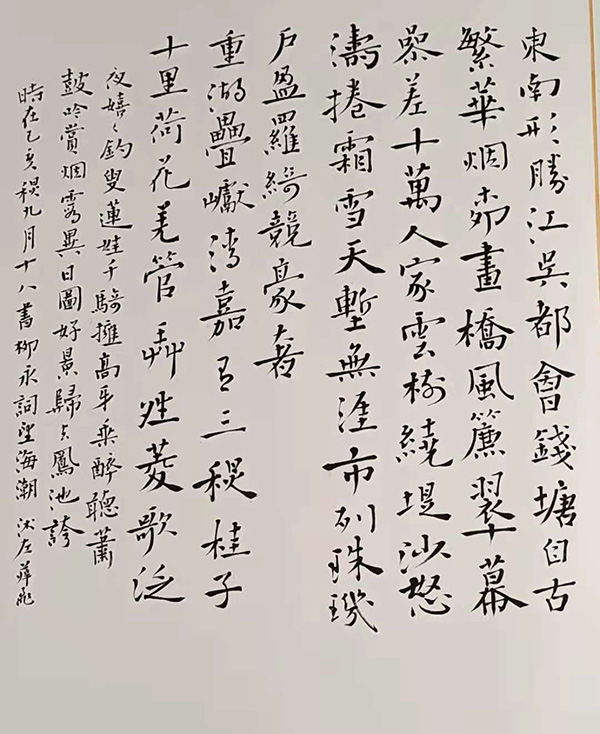 東南形勝江吳都會錢塘自古
繁華烟柳畫橋風簾翠幕
參差十萬人家雲樹繞堤沙怒
濤捲霜雪天塹無涯市列珠璣
戶盈羅綺競豪奢
重湖疊巘清嘉有三秋桂子
十里荷花羌管弄晴菱歌泛
夜嬉々釣叟蓮娃千騎擁高牙乘醉聽蕭
鼓吟賞烟霞異日圖好景歸去鳳池誇
時在己亥秋九月十八書柳永詞望海潮